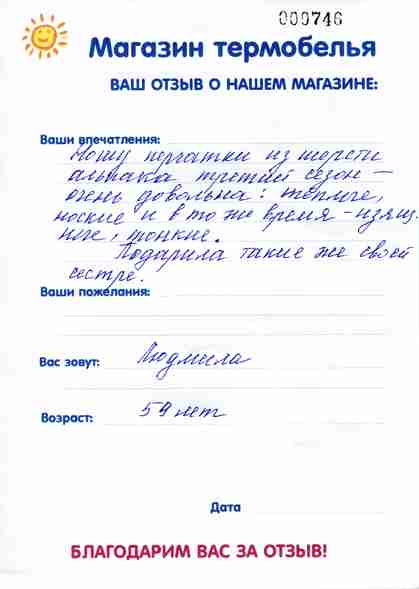 000746
Магазин термобелья
ВАШ ОТЗЫВ О НАШЕМ МАГАЗИНЕ:
Ваши впечатления:
Ношу перчатки из шерсти
альпака третий сезон –
очень довольна: теплые,
ноские и в то же время – изящ
ные, тонкие.
Подарила такие же своей
сестре.
Ваши пожелания:
Вас зовут: Людмила
Возраст: 59 лет
Дата
БЛАГОДАРИМ ВАС ЗА ОТЗЫВ!